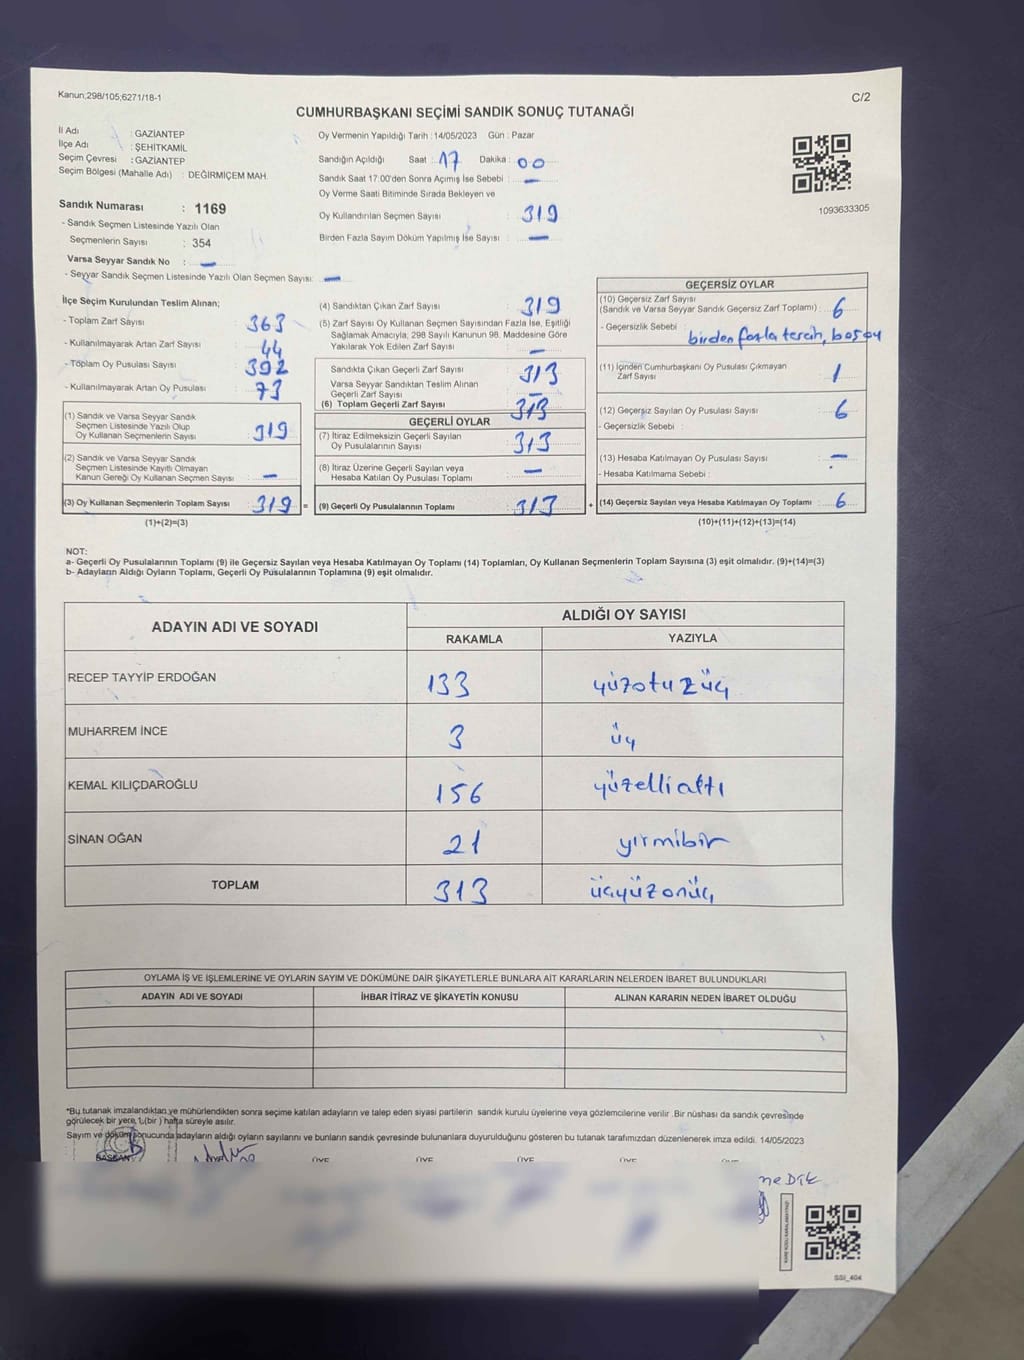 Kanun;298/105;6271/18-1
C/2
CUMHURBAŞKANI SEÇİMİ SANDIK SONUÇ TUTANAĞI
İl Adı : GAZİANTEP
İlçe Adı : ŞEHİTKAMİL
Seçim Çevresi : GAZİANTEP
Seçim Bölgesi (Mahalle Adı) : DEĞİRMİÇEM MAH.
Sandık Numarası : 1169
- Sandık Seçmen Listesinde Yazılı Olan
Seçmenlerin Sayısı : 354
Varsa Seyyar Sandık No : —
- Seyyar Sandık Seçmen Listesinde Yazılı Olan Seçmen Sayısı: —
Oy Vermenin Yapıldığı Tarih : 14/05/2023 Gün : Pazar
Sandığın Açıldığı Saat : 17 Dakika : 00
Sandık Saat 17:00'den Sonra Açımış İse Sebebi : —
Oy Verme Saati Bitiminde Sırada Bekleyen ve
Oy Kullandırılan Seçmen Sayısı : 319
Birden Fazla Sayım Döküm Yapılmış İse Sayısı : —
1093633305
İlçe Seçim Kurulundan Teslim Alınan;
- Toplam Zarf Sayısı : 363
- Kullanılmayarak Artan Zarf Sayısı : 44
- Toplam Oy Pusulası Sayısı : 392
- Kullanılmayarak Artan Oy Pusulası : 73
(1) Sandık ve Varsa Seyyar Sandık
Seçmen Listesinde Yazılı Olup
Oy Kullanan Seçmenlerin Sayısı : 319
(2) Sandık ve Varsa Seyyar Sandık
Seçmen Listesinde Kayıtlı Olmayan
Kanun Gereği Oy Kullanan Seçmen Sayısı : —
(3) Oy Kullanan Seçmenlerin Toplam Sayısı : 319 =
(1)+(2)=(3)
(4) Sandıktan Çıkan Zarf Sayısı : 319
(5) Zarf Sayısı Oy Kullanan Seçmen Sayısından Fazla İse, Eşitliği
Sağlamak Amacıyla, 298 Sayılı Kanunun 98. Maddesine Göre
Yakılarak Yok Edilen Zarf Sayısı : —
Sandıkta Çıkan Geçerli Zarf Sayısı : 313
Varsa Seyyar Sandıktan Teslim Alınan
Geçerli Zarf Sayısı : —
(6) Toplam Geçerli Zarf Sayısı : 313
GEÇERLİ OYLAR
(7) İtiraz Edilmeksizin Geçerli Sayılan
Oy Pusulalarının Sayısı : 313
(8) İtiraz Üzerine Geçerli Sayılan veya
Hesaba Katılan Oy Pusulası Toplamı : —
(9) Geçerli Oy Pusulalarının Toplamı : 313 +
GEÇERSİZ OYLAR
(10) Geçersiz Zarf Sayısı
(Sandık ve Varsa Seyyar Sandık Geçersiz Zarf Toplamı) : 6
- Geçersizlik Sebebi : birden fazla tercih, boş oy
(11) İçinden Cumhurbaşkanı Oy Pusulası Çıkmayan
Zarf Sayısı : 1
(12) Geçersiz Sayılan Oy Pusulası Sayısı : 6
- Geçersizlik Sebebi :
(13) Hesaba Katılmayan Oy Pusulası Sayısı : —
- Hesaba Katılmama Sebebi :
(14) Geçersiz Sayılan veya Hesaba Katılmayan Oy Toplamı : 6
(10)+(11)+(12)+(13)=(14)
NOT:
a- Geçerli Oy Pusulalarının Toplamı (9) ile Geçersiz Sayılan veya Hesaba Katılmayan Oy Toplamı (14) Toplamları, Oy Kullanan Seçmenlerin Toplam Sayısına (3) eşit olmalıdır. (9)+(14)=(3)
b- Adayların Aldığı Oyların Toplamı, Geçerli Oy Pusulalarının Toplamına (9) eşit olmalıdır.
ADAYIN ADI VE SOYADI ALDIĞI OY SAYISI
RAKAMLA YAZIYLA
RECEP TAYYİP ERDOĞAN 133 yüzotuzüç
MUHARREM İNCE 3 üç
KEMAL KILIÇDAROĞLU 156 yüzellialtı
SİNAN OĞAN 21 yirmibir
TOPLAM 313 üçyüzonüç
OYLAMA İŞ VE İŞLEMLERİNE VE OYLARIN SAYIM VE DÖKÜMÜNE DAİR ŞİKAYETLERLE BUNLARA AİT KARARLARIN NELERDEN İBARET BULUNDUKLARI
ADAYIN ADI VE SOYADI İHBAR İTİRAZ VE ŞİKAYETİN KONUSU ALINAN KARARIN NEDEN İBARET OLDUĞU
*Bu tutanak imzalandıktan ve mühürlendikten sonra seçime katılan adayların ve talep eden siyasi partilerin sandık kurulu üyelerine veya gözlemcilerine verilir .Bir nüshası da sandık çevresinde
görülecek bir yere 1 (bir ) hafta süreyle asılır.
Sayım ve döküm sonucunda adayların aldığı oyların sayılarını ve bunların sandık çevresinde bulunanlara duyurulduğunu gösteren bu tutanak tarafımızdan düzenlenerek imza edildi. 14/05/2023
BAŞKAN ÜYE ÜYE ÜYE ÜYE
SSİ_404